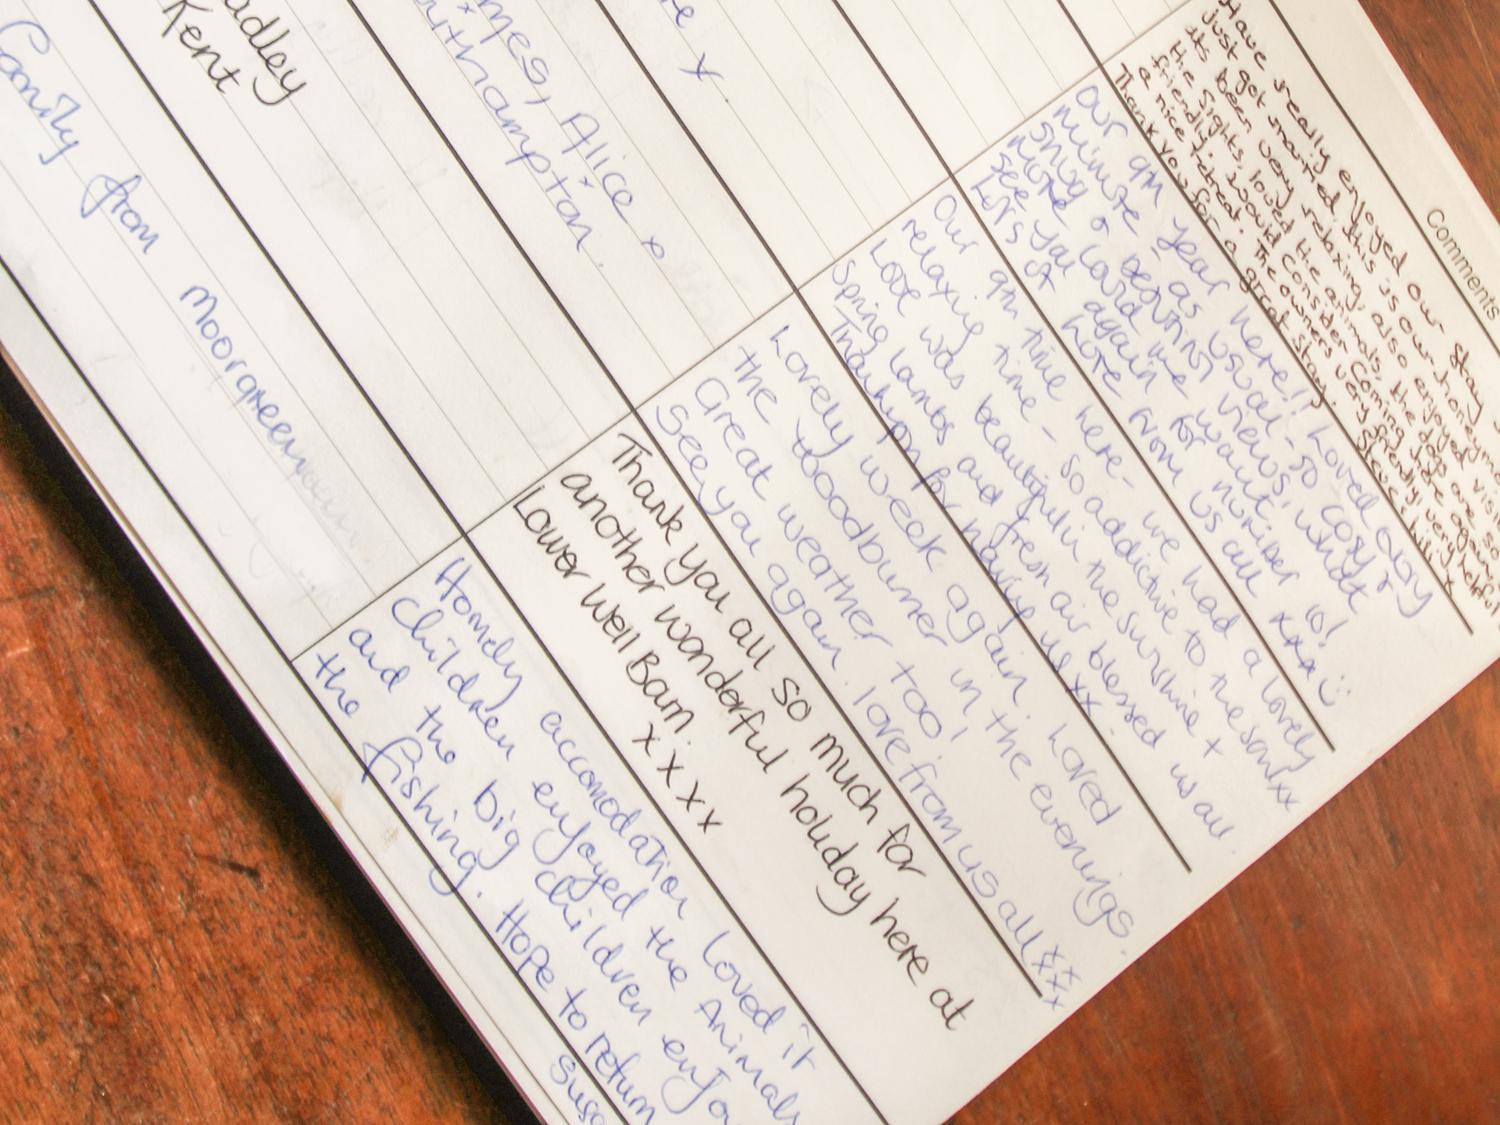 Comments
Have really enjoyed our stay
just got married this is our honeymoon
its been very relaxing, also enjoyed
the sights, loved the animals, the dogs are so
friendly, would consider coming here again for
a nice retreat. The owners very friendly, very helpful
Thank you for a great stay.
Our 9th year here!! Loved every
minute as usual - so cosy &
snug & beautiful views, while
more could we want.
see you again for number 10!
Lots of love from us all xxx
Our 9th time here - we had a lovely
relaxing time - so addictive to the
Love was beautiful in the sunshine +
Spring lambs and fresh air blessed us all
Thankyou for having us xx
Lovely week again. Loved
the woodburner in the evenings.
Great weather too!
See you again. love from us all xxxxx
Thank you all so much for
another wonderful holiday here at
Lower Well Barn. xxxx
Homely accomodation loved it
Children enjoyed the Animals
and the big children enjoy
the fishing. Hope to return
re x
mes, Alice x
uthampton.
adley
Kent
family from Moorgreen